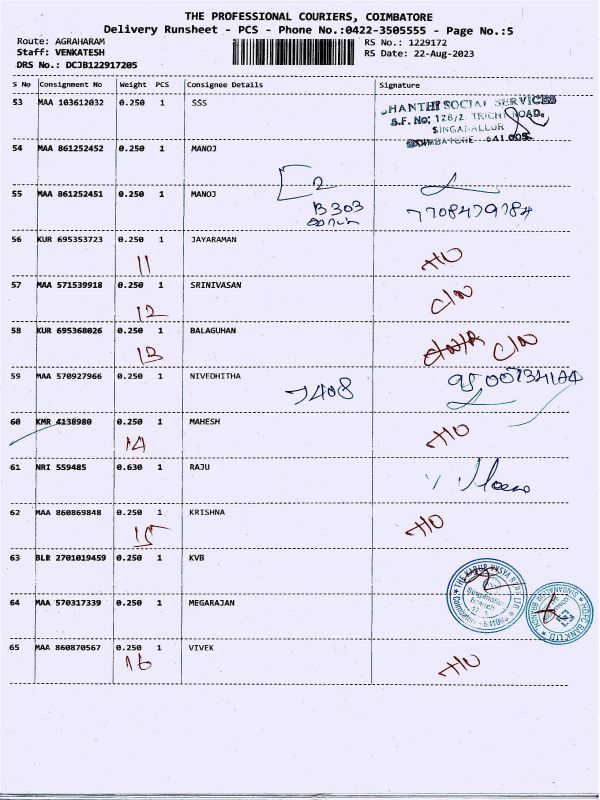 THE PROFESSIONAL COURIERS, COIMBATORE
Delivery Runsheet - PCS - Phone No.:0422-3505555 - Page No.:5
Route: AGRAHARAM RS No.: 1229172
Staff: VENKATESH RS Date: 22-Aug-2023
DRS No.: DCJB122917205
S No Consignment No Weight PCS Consignee Details Signature
53 MAA 103612032 0.250 1 SSS
SHANTHI SOCIAL SERVICES
S.F. No: 128/2, TRICHY ROAD,
SINGANALLUR
COIMBATORE 641 005.
54 MAA 861252452 0.250 1 MANOJ
2
55 MAA 861252451 0.250 1 MANOJ
B 303 7708479784
56 KUR 695353723 0.250 1 JAYARAMAN
11
57 MAA 571539918 0.250 1 SRINIVASAN
12 C/N
58 KUR 695368026 0.250 1 BALAGUHAN
13 C/N
59 MAA 570927966 0.250 1 NIVEDHITHA
7408
60 KMR 4138980 0.250 1 MAHESH
14
61 NRI 559485 0.630 1 RAJU
62 MAA 860869848 0.250 1 KRISHNA
15
63 BLR 2701019459 0.250 1 KVB
THE KARUR VYSYA BANK LTD
Singanallur
Branch
Coimbatore - 641005
64 MAA 570317339 0.250 1 MEGARAJAN
HDFC BANK LTD
SINGANALLUR
65 MAA 860870567 0.250 1 VIVEK
16